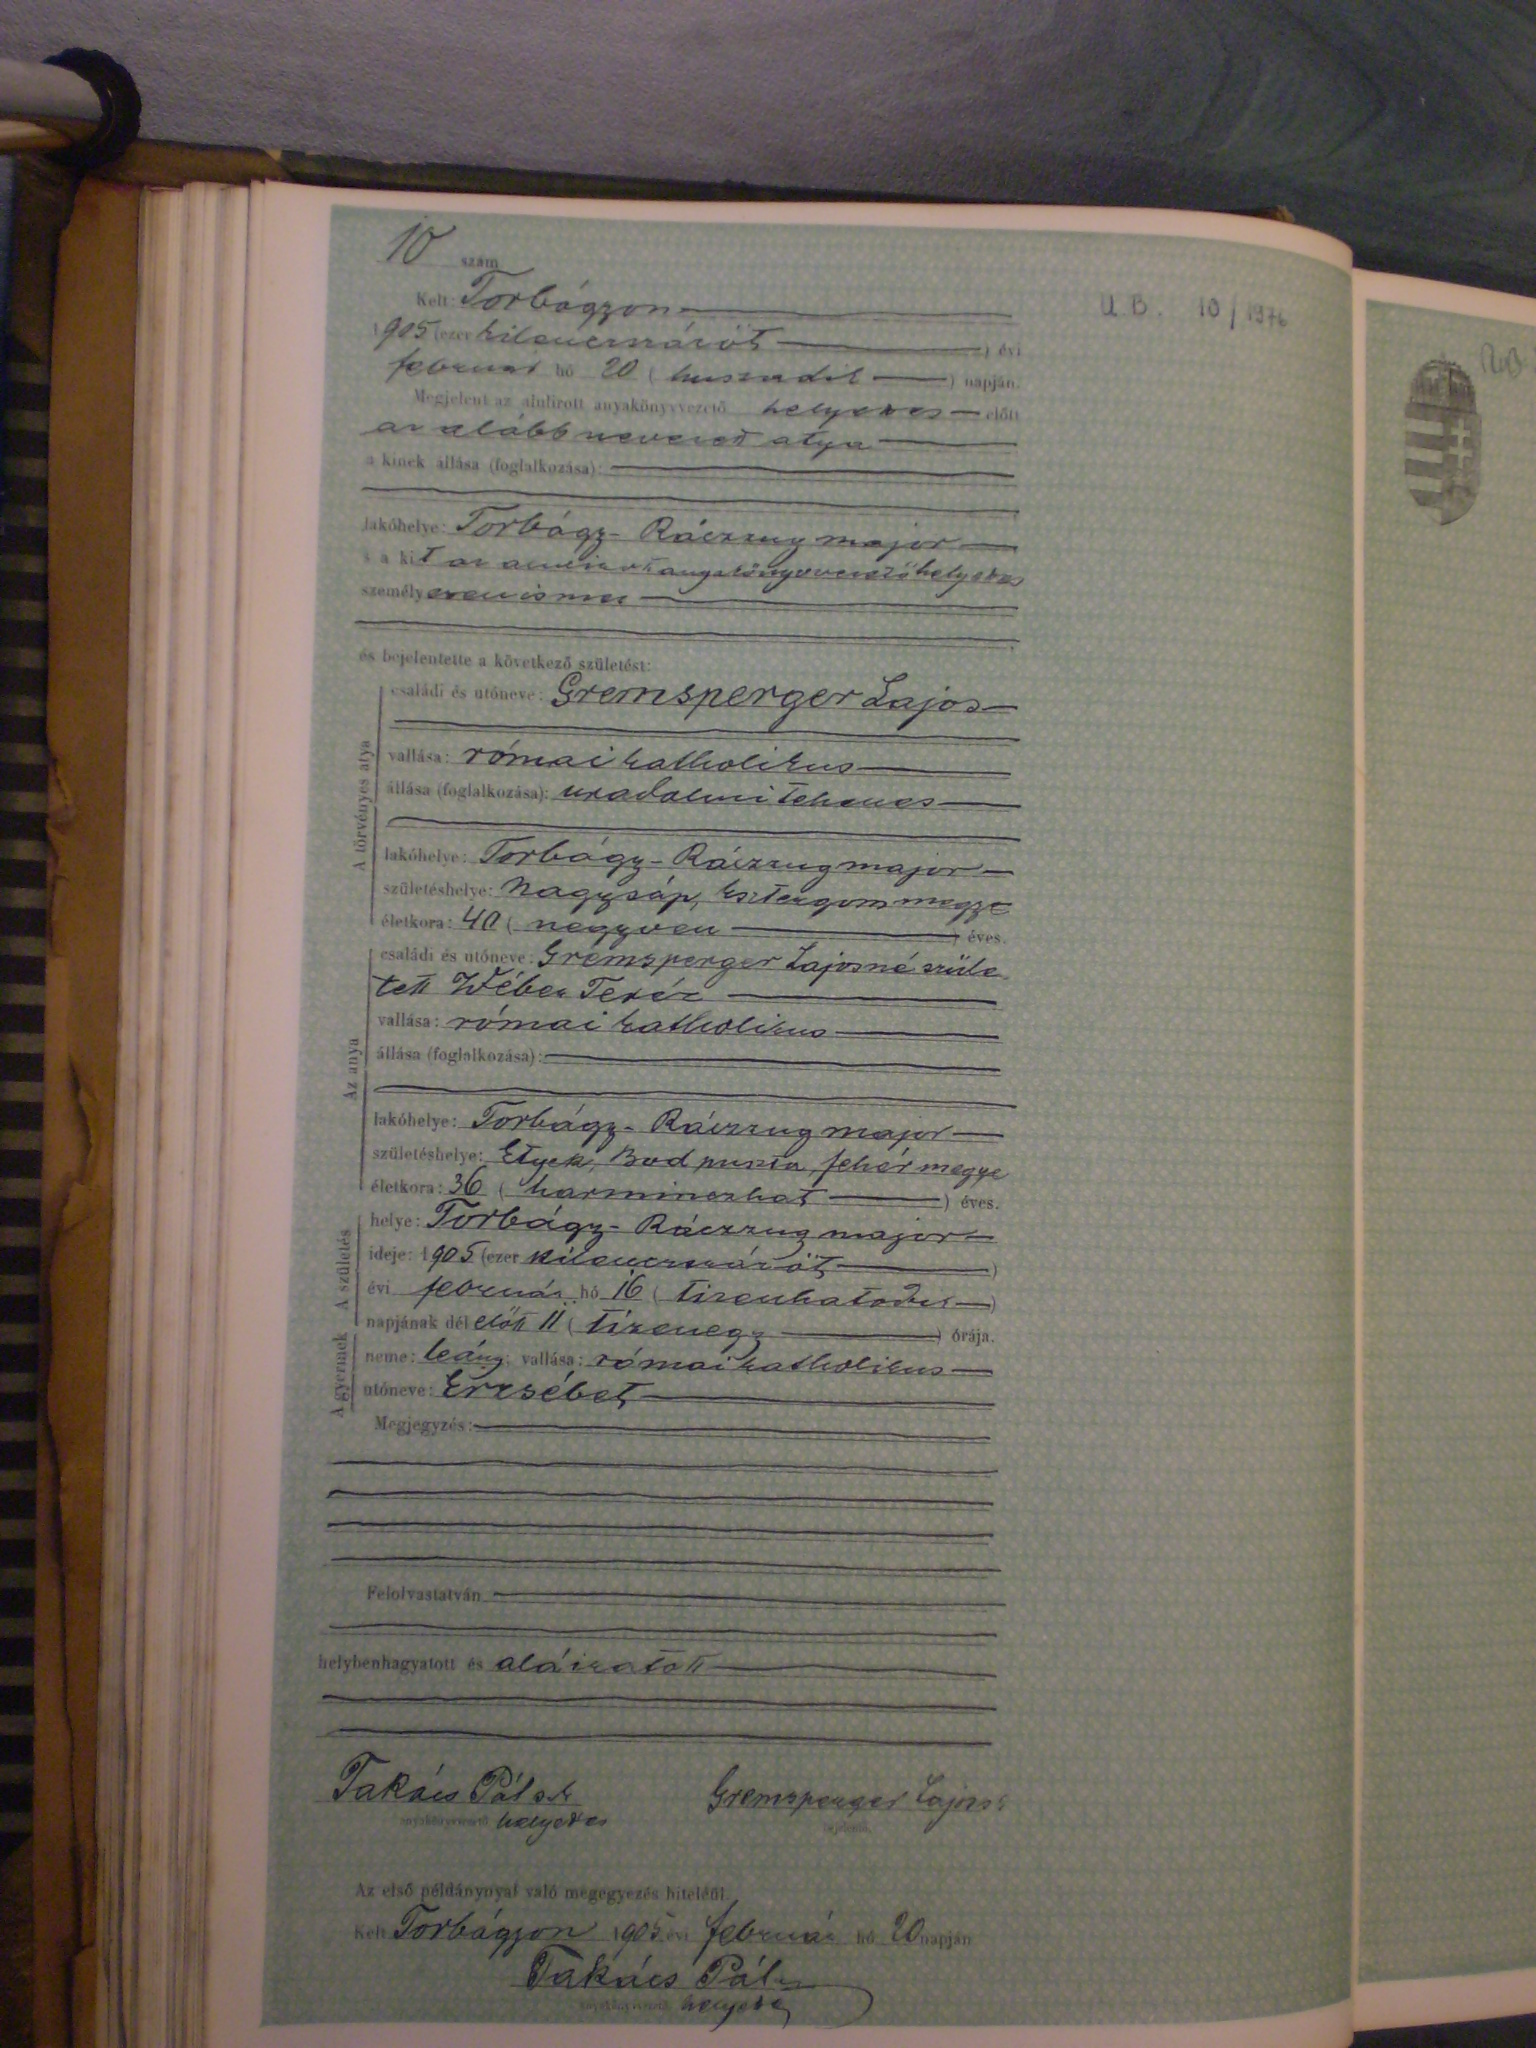 10 szám
U.B. 10/1976
Kelt: Torbágyon
1905 (ezer kilenczszázöt ) évi
február hó 20 ( huszadik ) napján.
Megjelent az alulirott anyakönyvvezető helyettes előtt
az alább nevezett atya
a kinek állása (foglalkozása):
lakóhelye: Torbágy - Ráczzug major
s a kit az alulirott anyakönyvvezető helyettes
személyesen ismer
és bejelentette a következő születést:
A törvényes atya
családi és utóneve: Gremsperger Lajos
vallása: római katholikus
állása (foglalkozása): uradalmi tehenes
lakóhelye: Torbágy - Ráczzug major
születéshelye: Nagysáp, Esztergom megye
életkora: 40 ( negyven ) éves.
Az anya
családi és utóneve: Gremsperger Lajosné szüle
tett Wéber Teréz
vallása: római katholikus
állása (foglalkozása):
lakóhelye: Torbágy - Ráczzug major
születéshelye: Etyek, Bod puszta, fehér megye
életkora: 36 ( harminczhat ) éves.
A születés
helye: Torbágy - Ráczzug major
ideje: 1905 (ezer kilenczszázöt )
évi február hó 16 ( tizenhatodik )
napjának dél előtt 11 ( tizenegy ) órája.
A gyermek
neme: leány; vallása: római katholikus
utóneve: Erzsébet
Megjegyzés:
Felolvastatván
helybenhagyatott és aláiratott
Takács Pál sk Gremsperger Lajos
anyakönyvvezető helyettes bejelentő.
Az első példánynyal való megegyezés hiteléül.
Kelt Torbágyon 1905 évi február hó 20 napján
Takács Pál
anyakönyvvezető helyettes